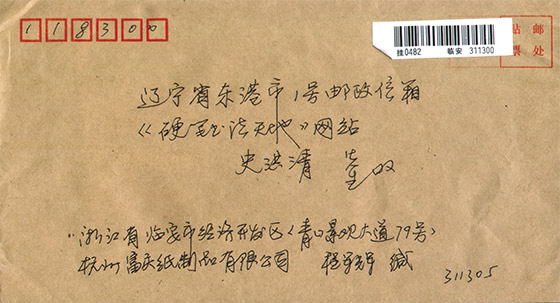 118300
贴邮
票处
挂0482 临安 311300
辽宁省东港市1号邮政信箱
《硬笔书法天地》网站
史洪清 收
浙江省临安市经济开发区《青山景观大道79号》
杭州富庆纸制品有限公司 缄
311305